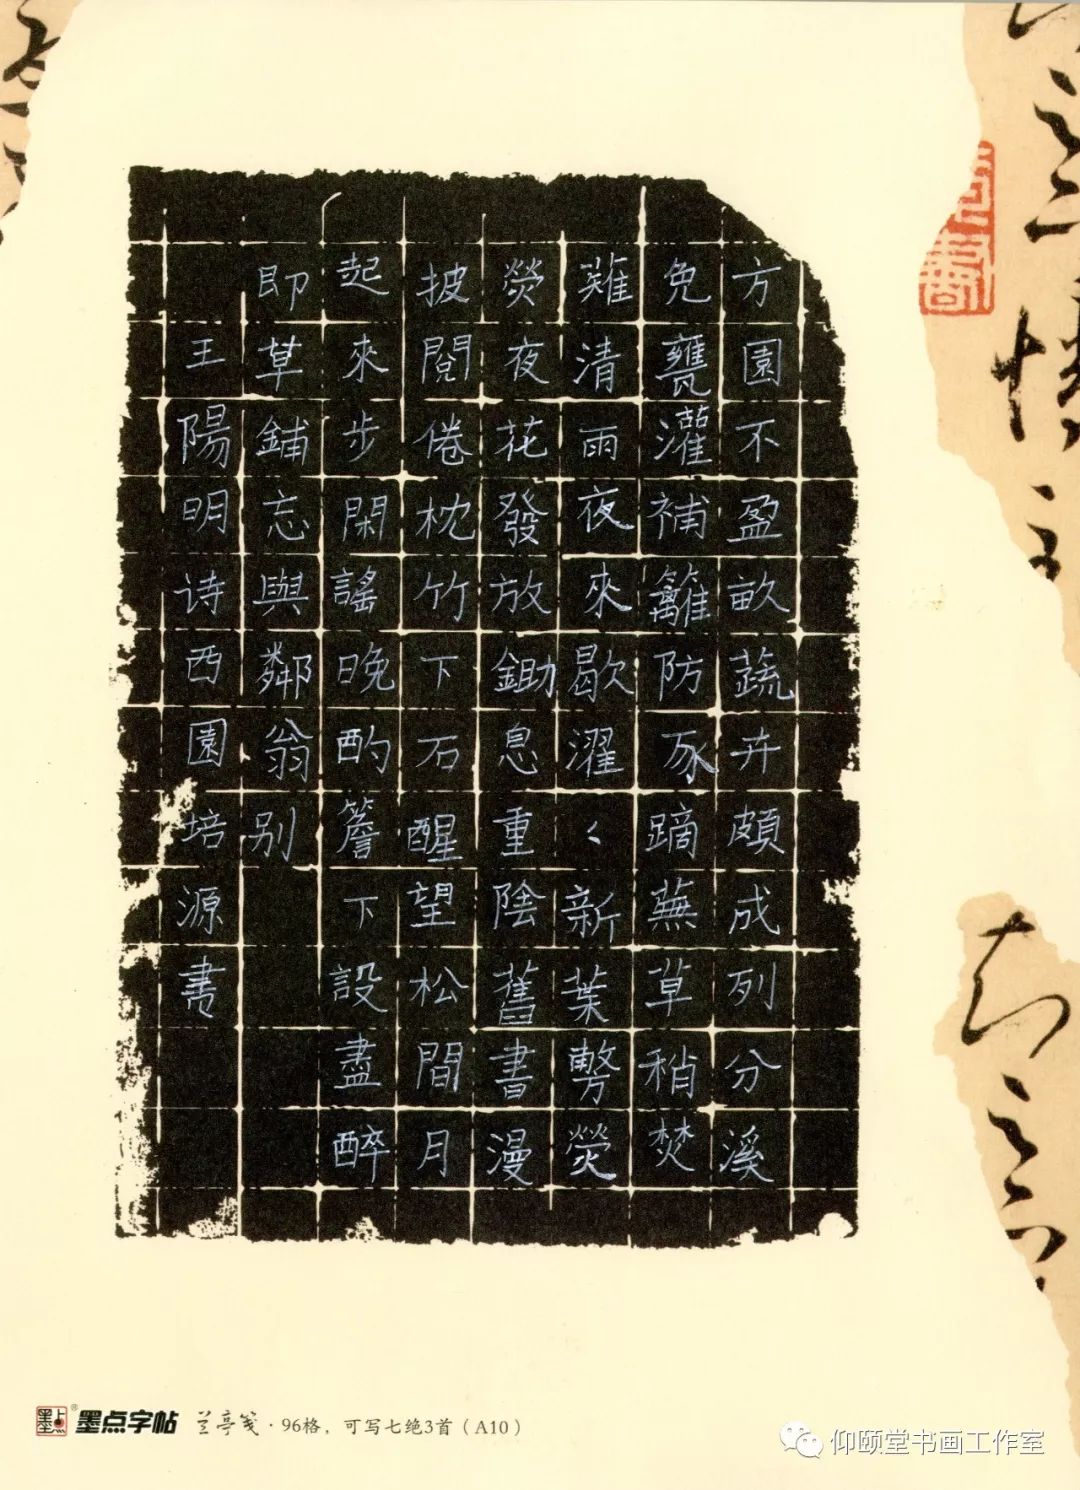 方園不盈畝蔬卉頗成列分溪
免甕灌補籬防豕蹢蕪草稍焚
薙清雨夜來歇濯く新葉敷熒
熒夜花發放鋤息重陰舊書漫
披閱倦枕竹下石醒望松間月
起來步閑謠晚酌簷下設盡醉
即草鋪忘與鄰翁別
王陽明诗西園培源書
墨点字帖 兰亭笺·96格,可写七绝3首(A10)
仰颐堂书画工作室